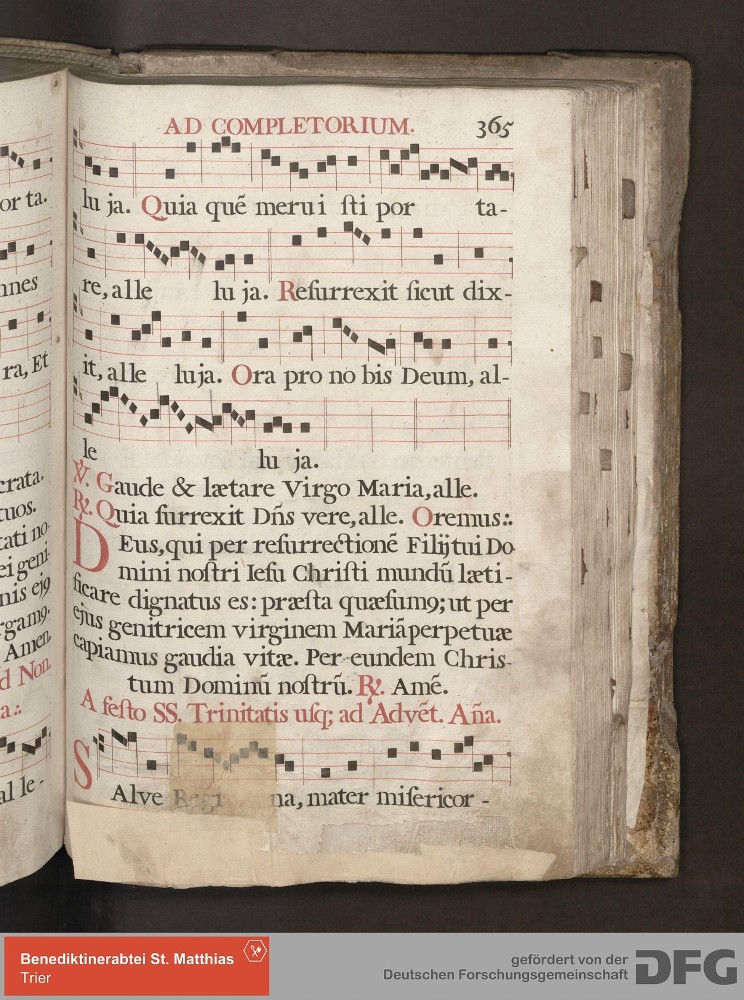 or ta.
nnes
ra, Et
crata.
tuos.
tati no-
ei geni-
nis ejꝰ
rgamꝰ.
Amen.
d Non.
a.:
al le-
AD COMPLETORIUM. 365
lu ja. Quia quē merui ſti por ta-
re, alle lu ja. Reſurrexit ſicut dix-
it, alle luja. Ora pro no bis Deum, al-
le lu ja.
℣. Gaude & lætare Virgo Maria, alle.
℟. Quia ſurrexit Dn̄s vere, alle. Oremus:.
DEus, qui per reſurrectionē Filij tui Do
mini noſtri Ieſu Chriſti mundū læti-
ficare dignatus es: præſta quæſumꝰ; ut per
ejus genitricem virginem Mariā perpetuæ
capiamus gaudia vitæ. Per eundem Chris-
tum Dominū noſtrū. ℟. Amē.
A feſto SS. Trinitatis uſq; ad Advēt. Aña.
SAlve Regi na, mater miſericor-
Benediktinerabtei St. Matthias
Trier
gefördert von der
Deutschen Forschungsgemeinschaft
DFG